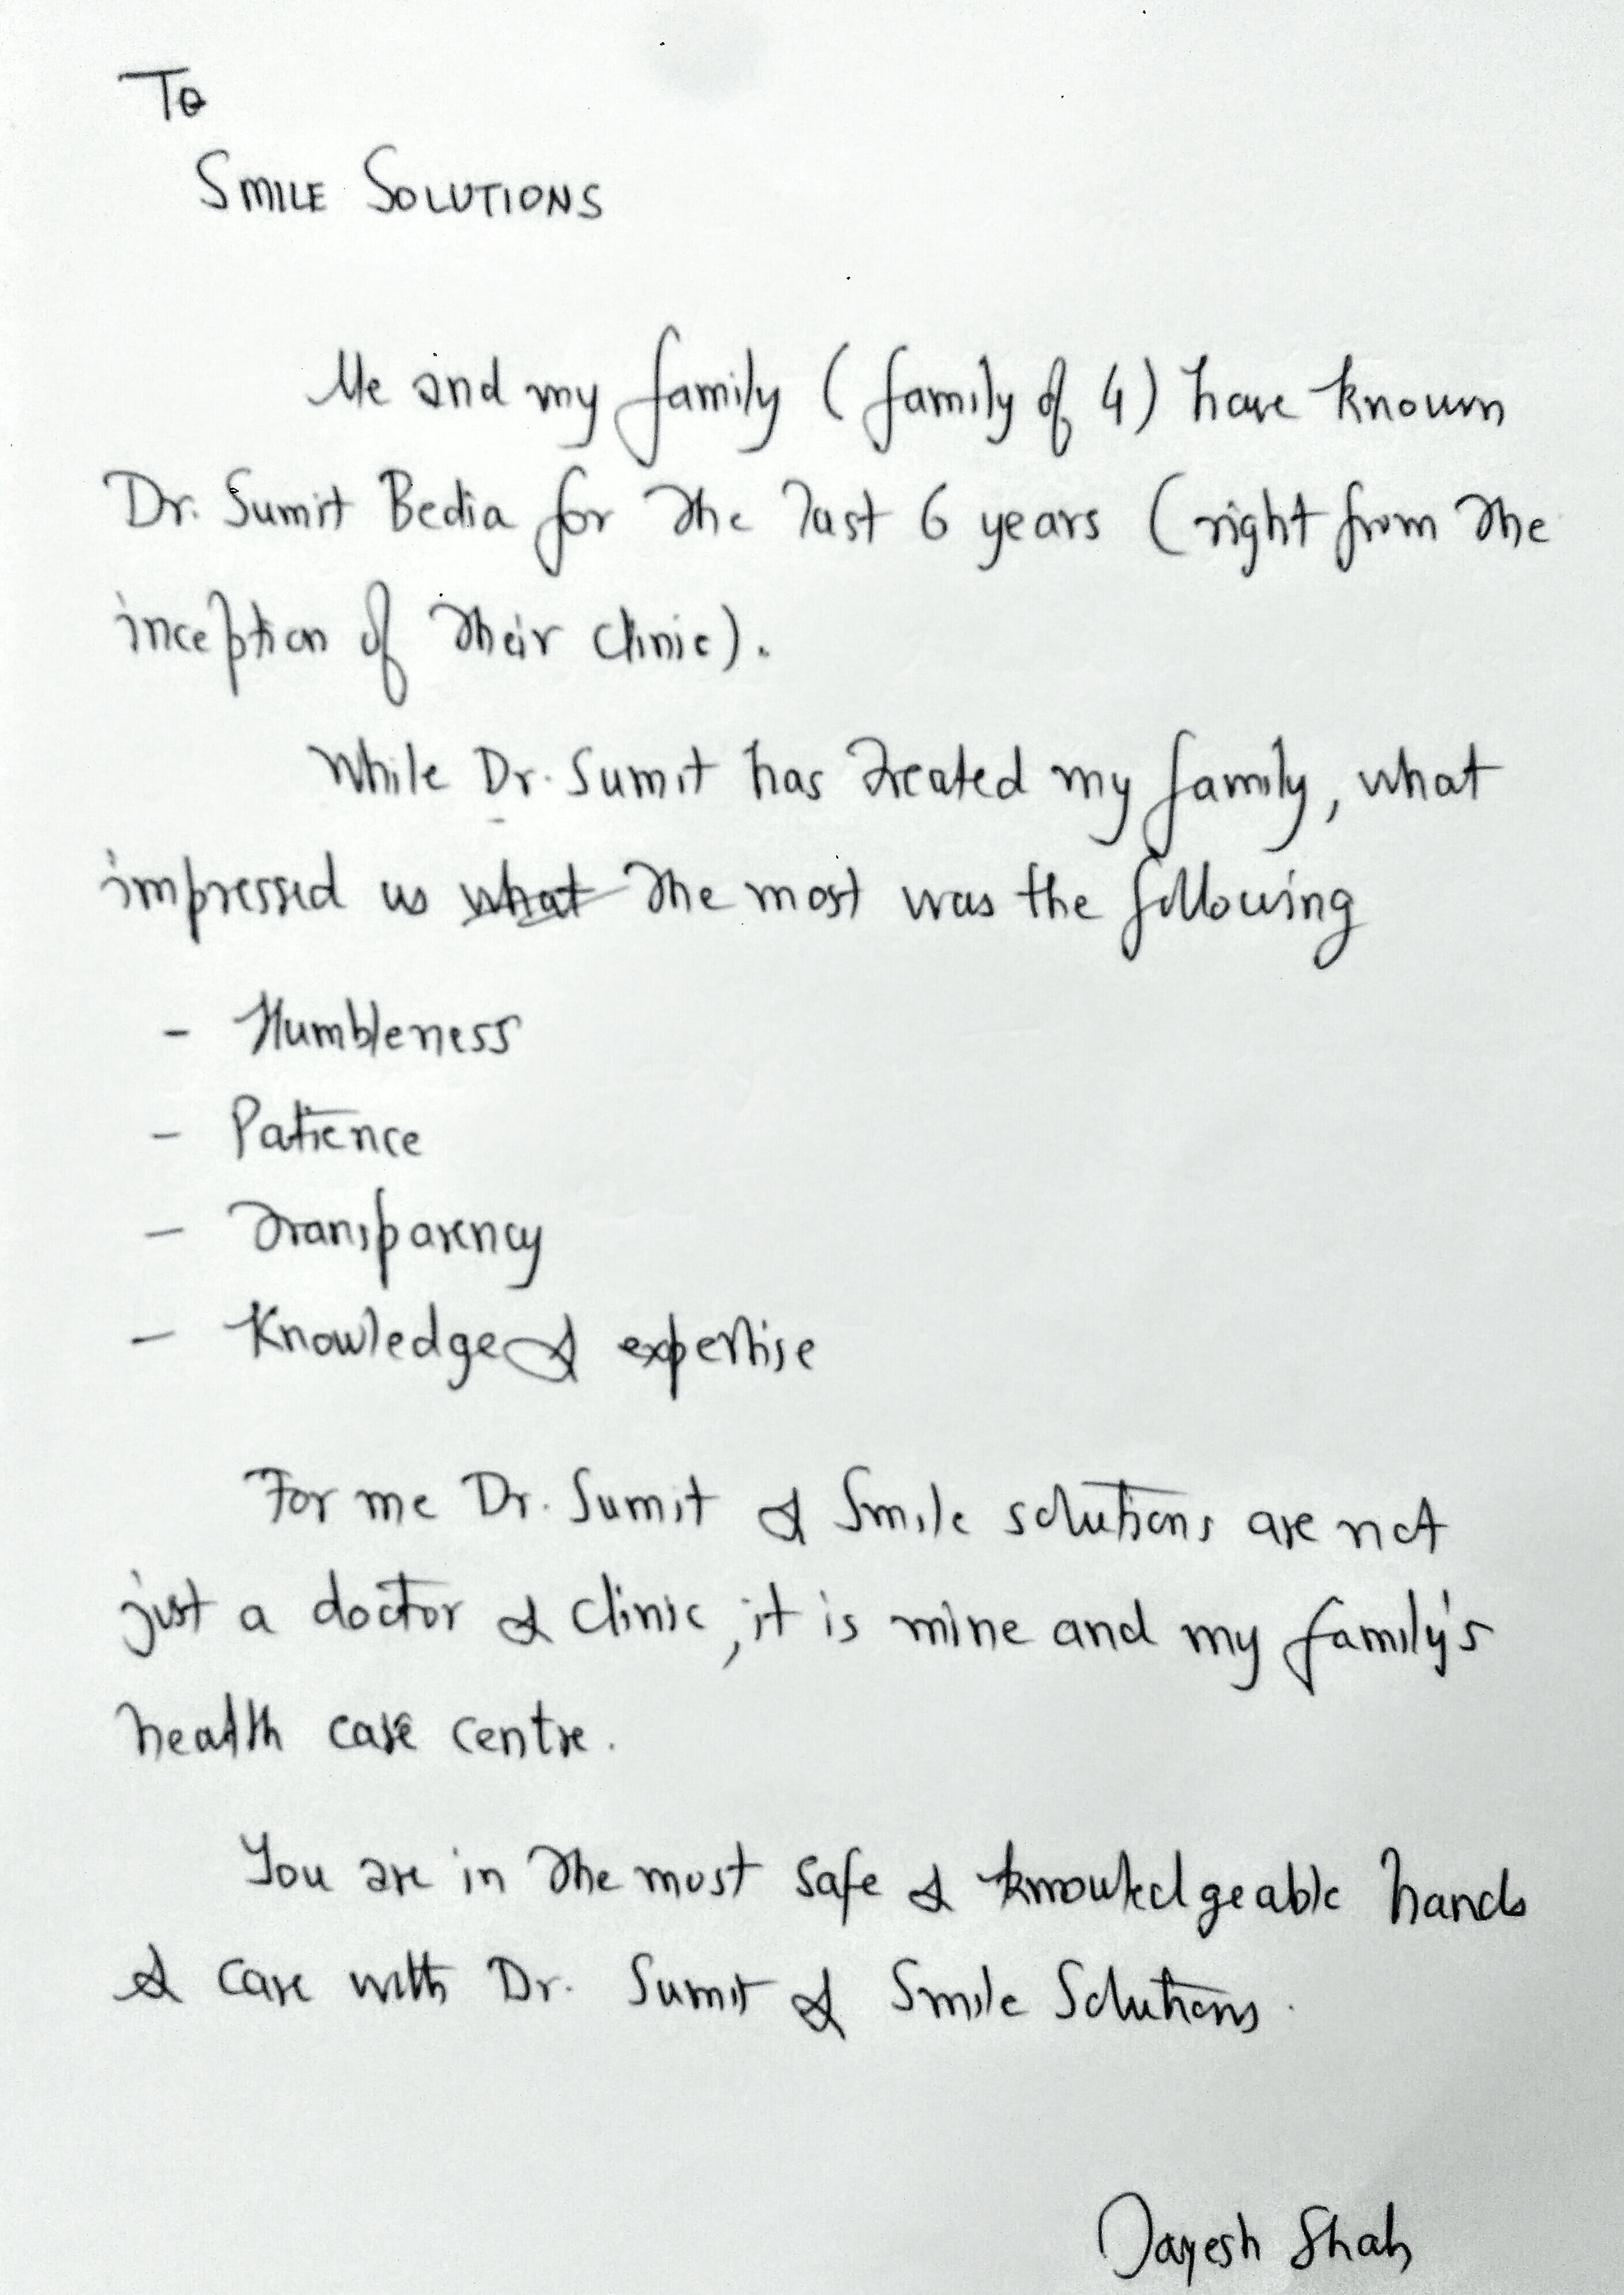 To
SMILE SOLUTIONS
Me and my family (family of 4) have known
Dr. Sumit Bedia for the last 6 years (right from the
inception of their clinic).
While Dr. Sumit has treated my family, what
impressed us what the most was the following
- Humbleness
- Patience
- Transparency
- Knowledge & expertise
For me Dr. Sumit & Smile solutions are not
just a doctor & clinic, it is mine and my family's
health care centre.
You are in the most safe & knowledgeable hands
& care with Dr. Sumit & Smile Solutions.
Jayesh Shah